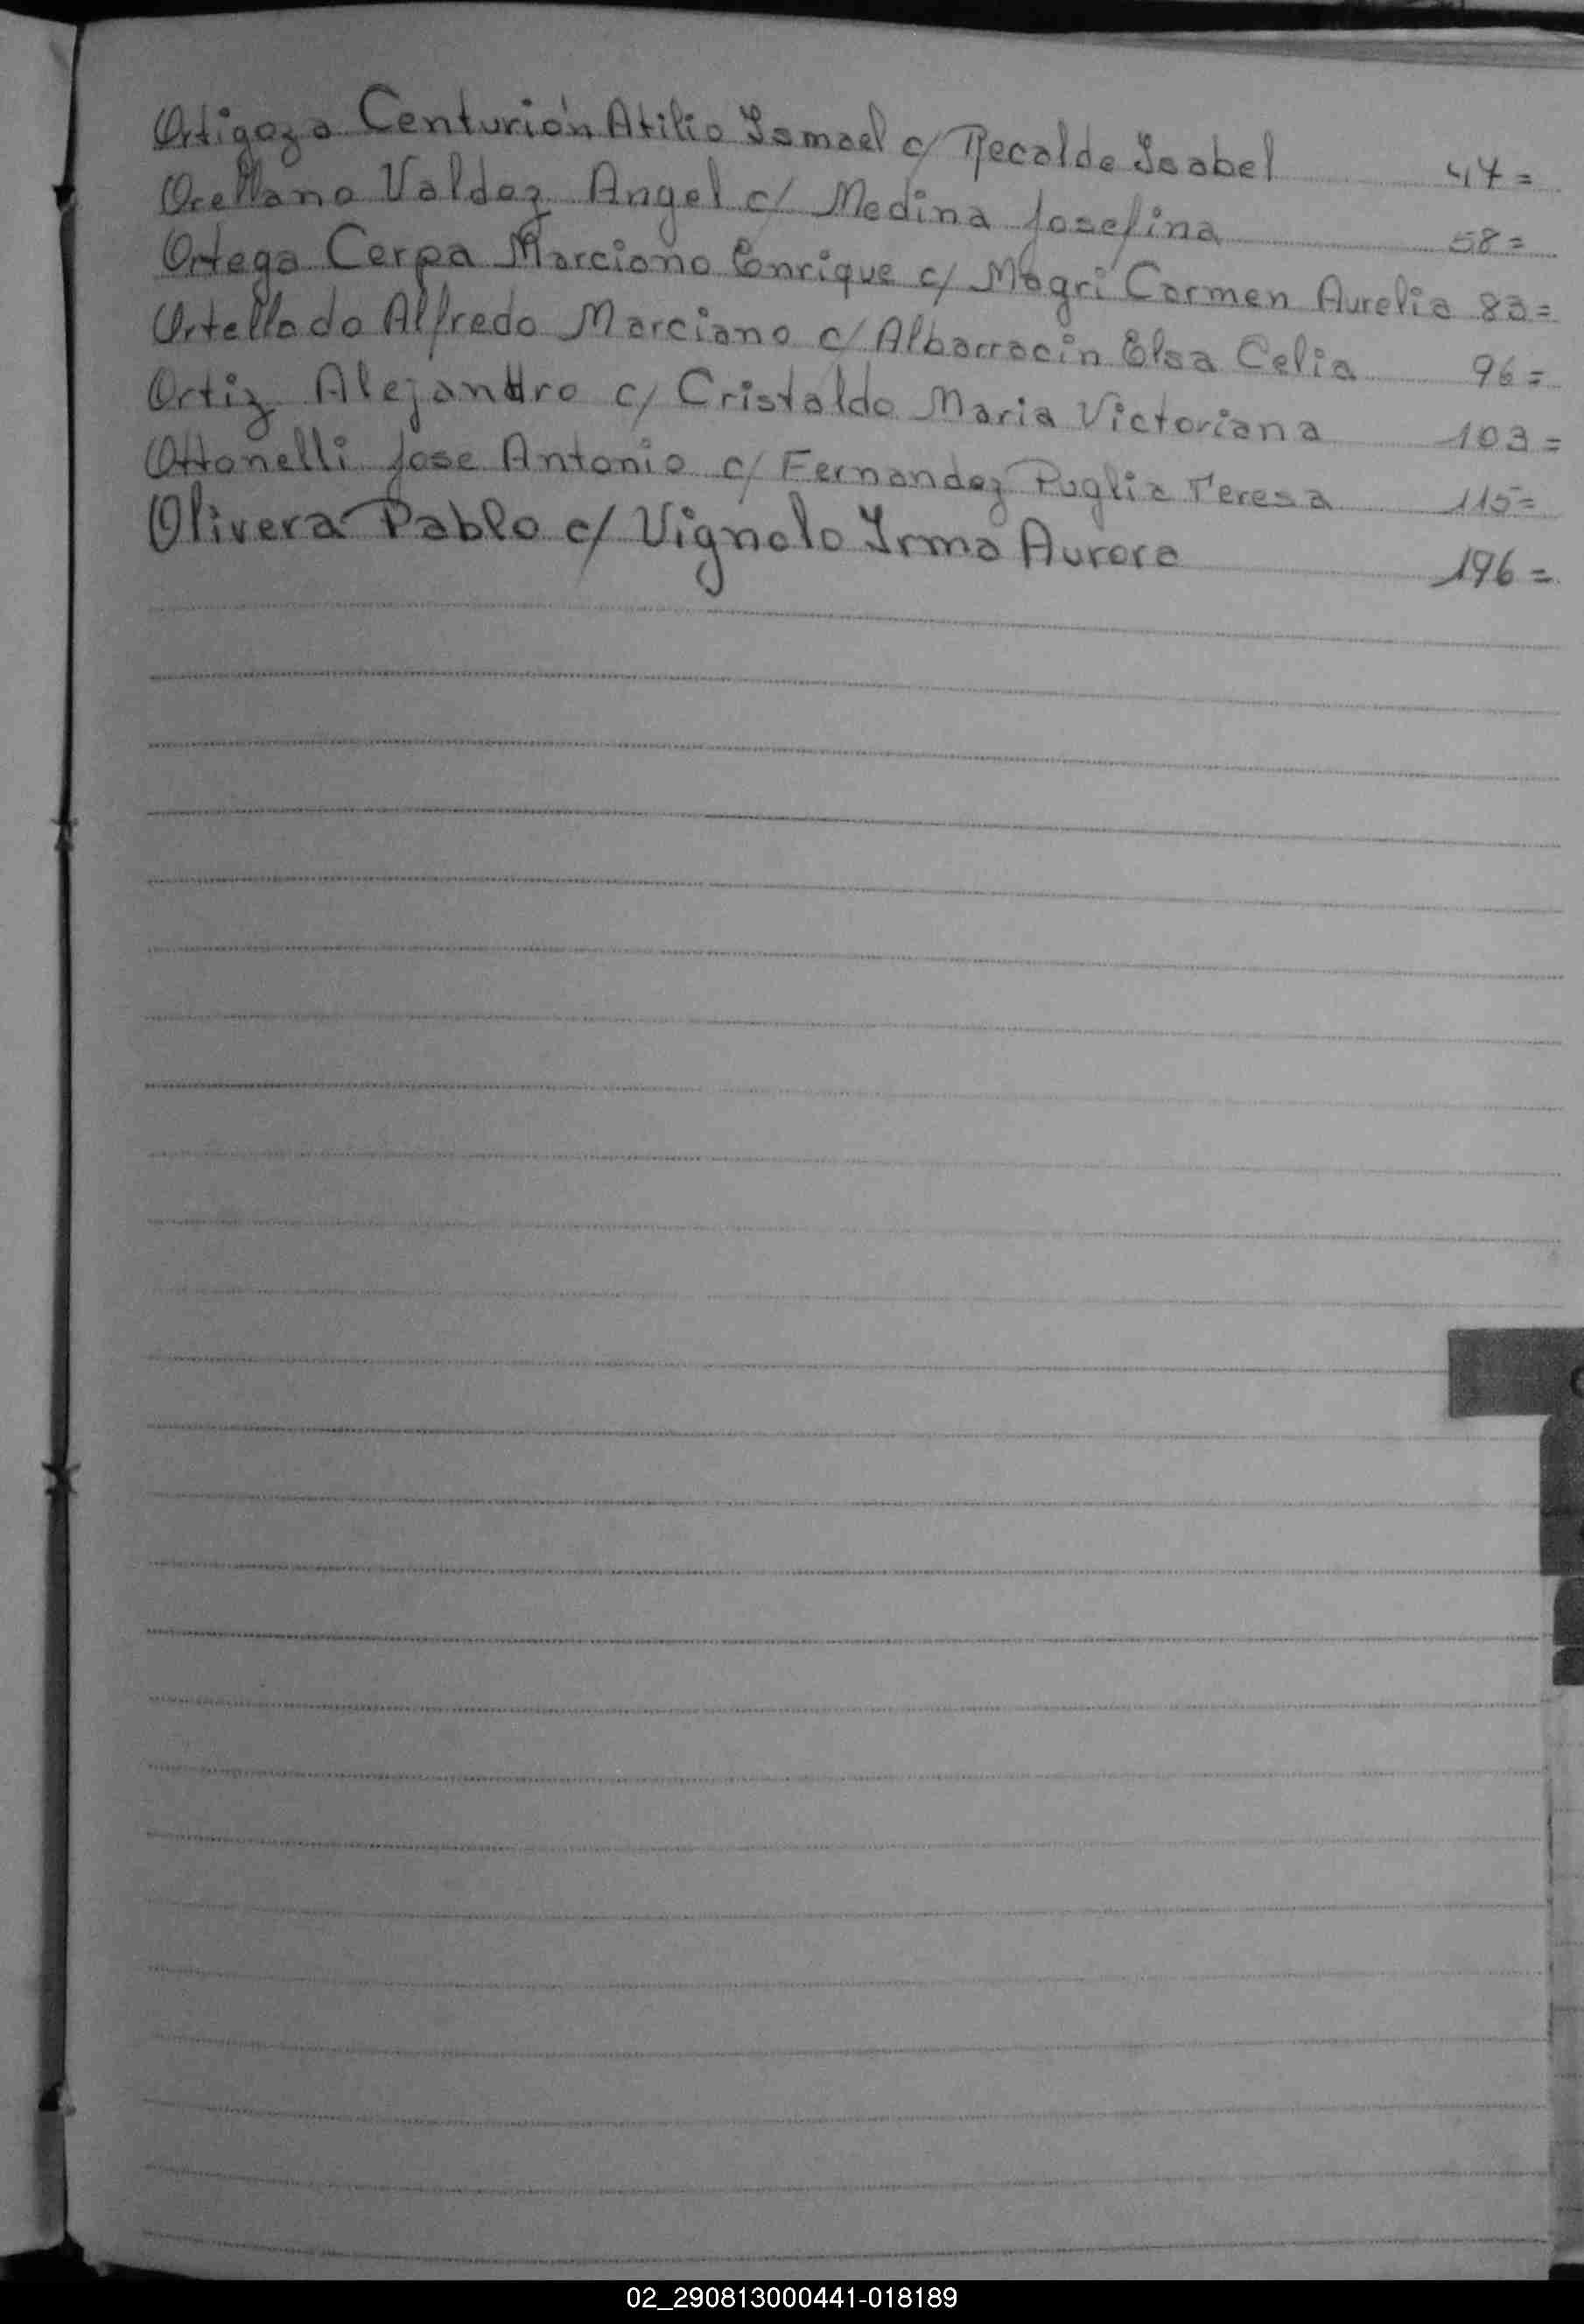 Ortigoza Centurión Atilio Ismael c/ Recalde Isabel 47=
Orellano Valdez Angel c/ Medina Josefina 58=
Ortega Cerpa Marciano Enrique c/ Magri Carmen Aurelia 83=
Ortellado Alfredo Marciano c/ Albarracin Elsa Celia 96=
Ortiz Alejandro c/ Cristaldo Maria Victoriana 103=
Ottonelli Jose Antonio c/ Fernandez Puglia Teresa 115=
Olivera Pablo c/ Vignolo Irma Aurora 196=
02_290813000441-018189